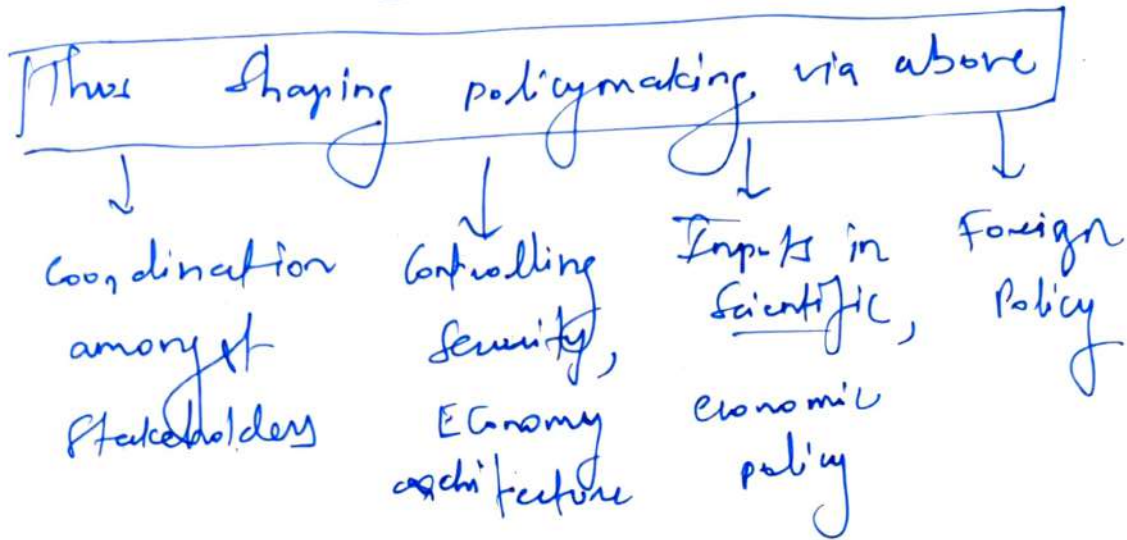 Thus Shaping policymaking via above
Coordination
amongst
Stakeholders
Controlling
Security,
Economy
architecture
Inputs in
Scientific,
economic
policy
Foreign
Policy